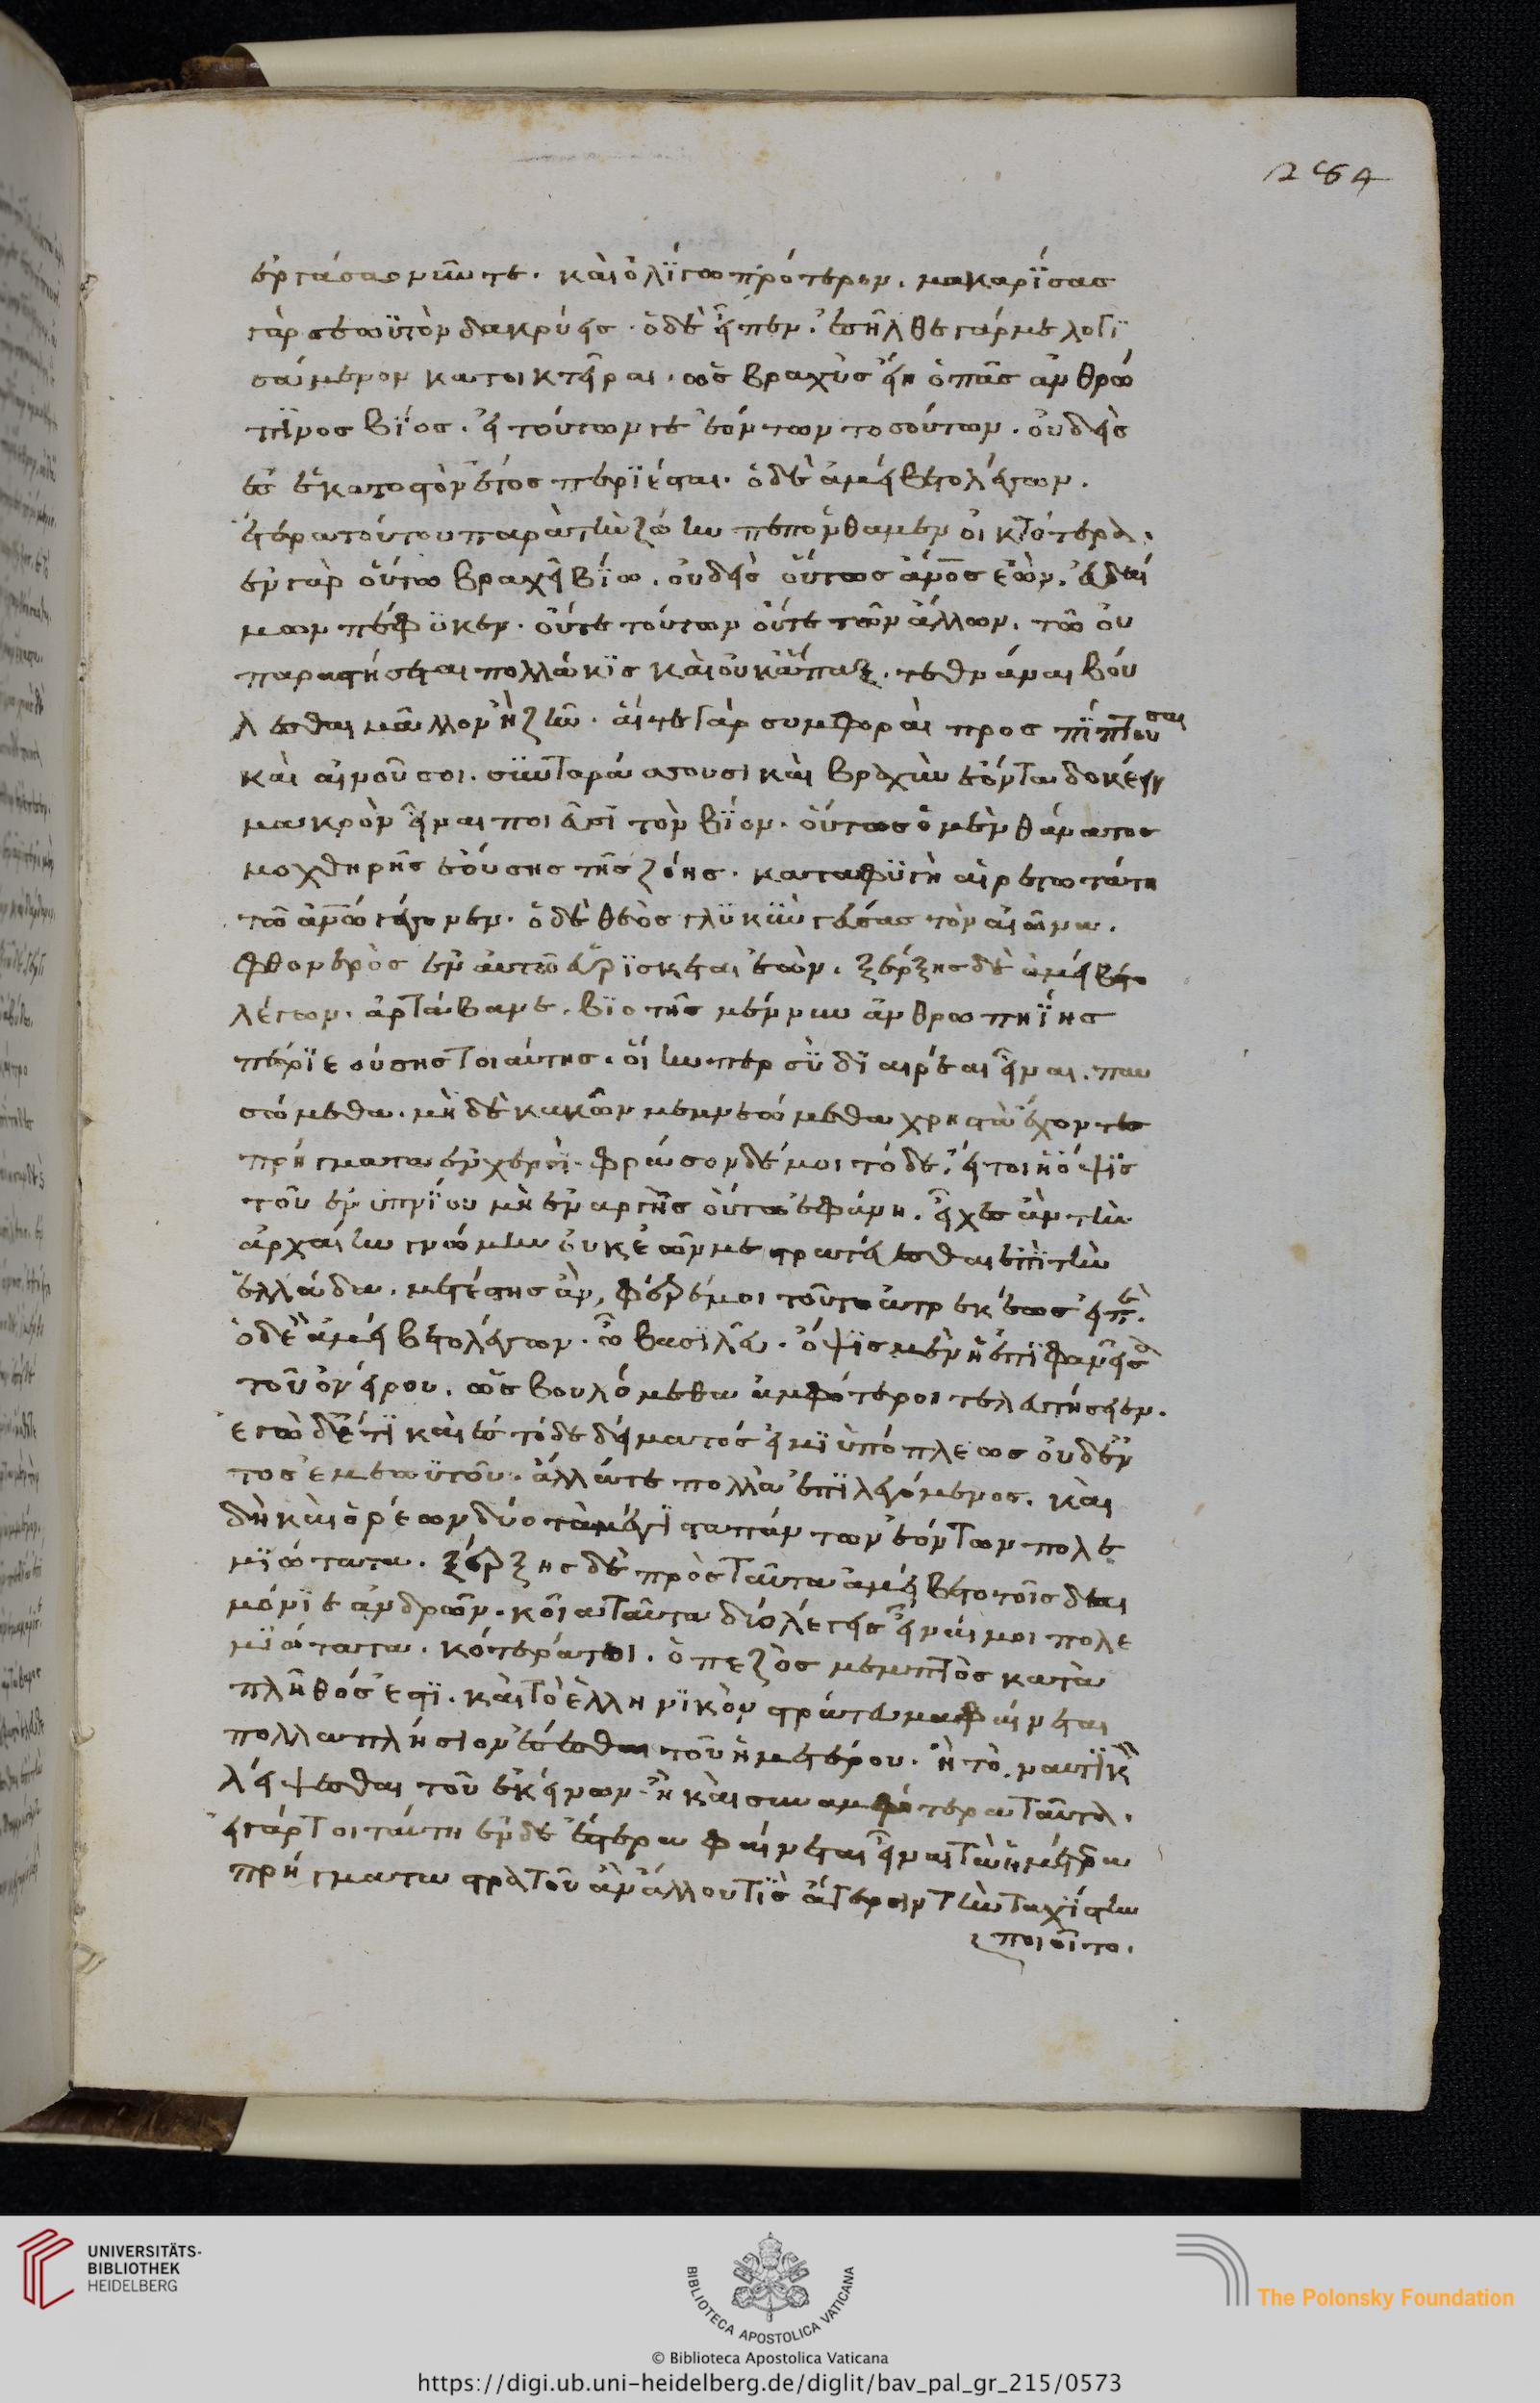 284
ἐργάσαο νῦν τε. καὶ ὀλίγω πρότερον. μακαρίσας
γὰρ σεωϋτὸν δακρύεις. ὁ δὲ εἶπεν. ἐσῆλθε γάρ με λογϊ
σάμενον κατοικτεῖραι. ὡς βραχὺς εἴη ὁ πᾶς ἀνθρώ
πϊνος βΐος. εἰ τούτων γε ἐόντων τοσούτων. οὐδεὶς
ἐς ἑκατοστὸν ἔτος περϊέσται. ὁ δὲ ἀμείβετο λέγων.
ἕτερα τούτου παρὰ τὴν ζόην πεπόνθαμεν οἰκτότερα.
ἐν γὰρ οὕτω βραχεῖ βΐω. οὐδεὶς οὕτως ἄνος ἐὼν. εὐδαί
μων πέφϋκεν. οὔτε τούτων οὔτε τῶν ἄλλων. τῶ οὐ
παραστήσεται πολλάκϊς καὶ οὐκ ἅπαξ. τεθνάναι βού
λεσθαι μᾶλλον ἢ ζῆν. αἵ τε γὰρ συμφοραὶ προσπΐπτουσαι
καὶ αἱ νοῦσοι. συνταράσσουσι καὶ βραχὺν ἐόντα δοκέειν
μακρὸν εἶναι ποιεῦσϊ τὸν βΐον. οὕτως ὁ μὲν θάνατος
μοχθηρῆς ἐούσης τῆς ζόης. καταφϋγὴ αἱρετωτάτη
τῶ ἀνῶ γέγονεν. ὁ δὲ θεὸς γλϋκὺν γεύσας τὸν αἰῶνα.
φθονερὸς ἐν αὐτῶ εὑρΐσκεται ἐών. ξέρξης δὲ ἀμείβετο
λέγων. ἀρτάβανε. βϊοτῆς μέν νυν ἀνθρωπηΐης
πέρϊ ἐούσης τοιαύτης. οἵην περ σὺ δϊαιρέαι εἶναι. παυ
σόμεθα. μὴ δὲ κακῶν μεμνεώμεθα χρηστὰ ἔχοντες
πρήγματα ἐν χερσΐ. φράσον δέ μοι τόδε. εἴ τοι ἡ ὄψϊς
τοῦ ἐνυπνΐου μὴ ἐναργὴς οὕτω ἐφάνη. εἶχες ἂν τὴν
ἀρχαίην γνώμην οὐκ ἐῶν με στρατεύεσθαι ἐπὶ τὴν
ἑλλάδα. ἢ μετέστης ἄν, φέρε μοι τοῦτο ἀτρεκέως εἰπέ.
ὁ δὲ ἀμείβετο λέγων. ὦ βασϊλεῦ. ὄψϊς μὲν ἡ ἐπϊφανεῖσα
τοῦ ὀνείρου. ὡς βουλόμεθα ἀμφότεροι τελευτήσειεν.
ἐγὼ δὲ ἔτϊ καὶ ἐς τόδε δείματός εἰμϊ ὑπόπλεως οὐδὲ ἐν
τὸς ἐμεωϋτοῦ. ἄλλά τε πολλὰ ἐπϊλεγόμενος. καὶ
δὴ καὶ ὁρέων δύο τὰ μέγϊστα πάντων ἐόντων πολε
μϊώτατα. ξέρξης δὲ πρὸς ταῦτα ἀμείβετο τοῖσδε δαι
μόνϊε ἀνδρῶν. κοῖα ταῦτα δύο λέγεις εἶναί μοι πολε
μϊώτατα. κότερά τοι. ὁ πεζὸς μεμπτὸς κατὰ
πλῆθός ἐστϊ. καὶ τὸ ἑλληνϊκὸν στράτευμα φαίνεται
πολλαπλήσιον ἔσεσθαι τοῦ ἡμετέρου. ἢ τὸ ναυτϊκὸν
λείψεσθαι τοῦ ἐκείνων ἢ καὶ συναμφότερα ταῦτα.
εἰ γάρ τοι ταύτη ἐνδεέστερα φαίνεται εἶναι τὰ ἡμέτερα
πρήγματα στρατοῦ ἂν ἄλλου τϊς ἄγερσιν τὴν ταχΐστην
ποιοῖτο.
UNIVERSITÄTS-
BIBLIOTHEK
HEIDELBERG
BIBLIOTECA APOSTOLICA VATICANA
The Polonsky Foundation
© Biblioteca Apostolica Vaticana
https://digi.ub.uni-heidelberg.de/diglit/bav_pal_gr_215/0573